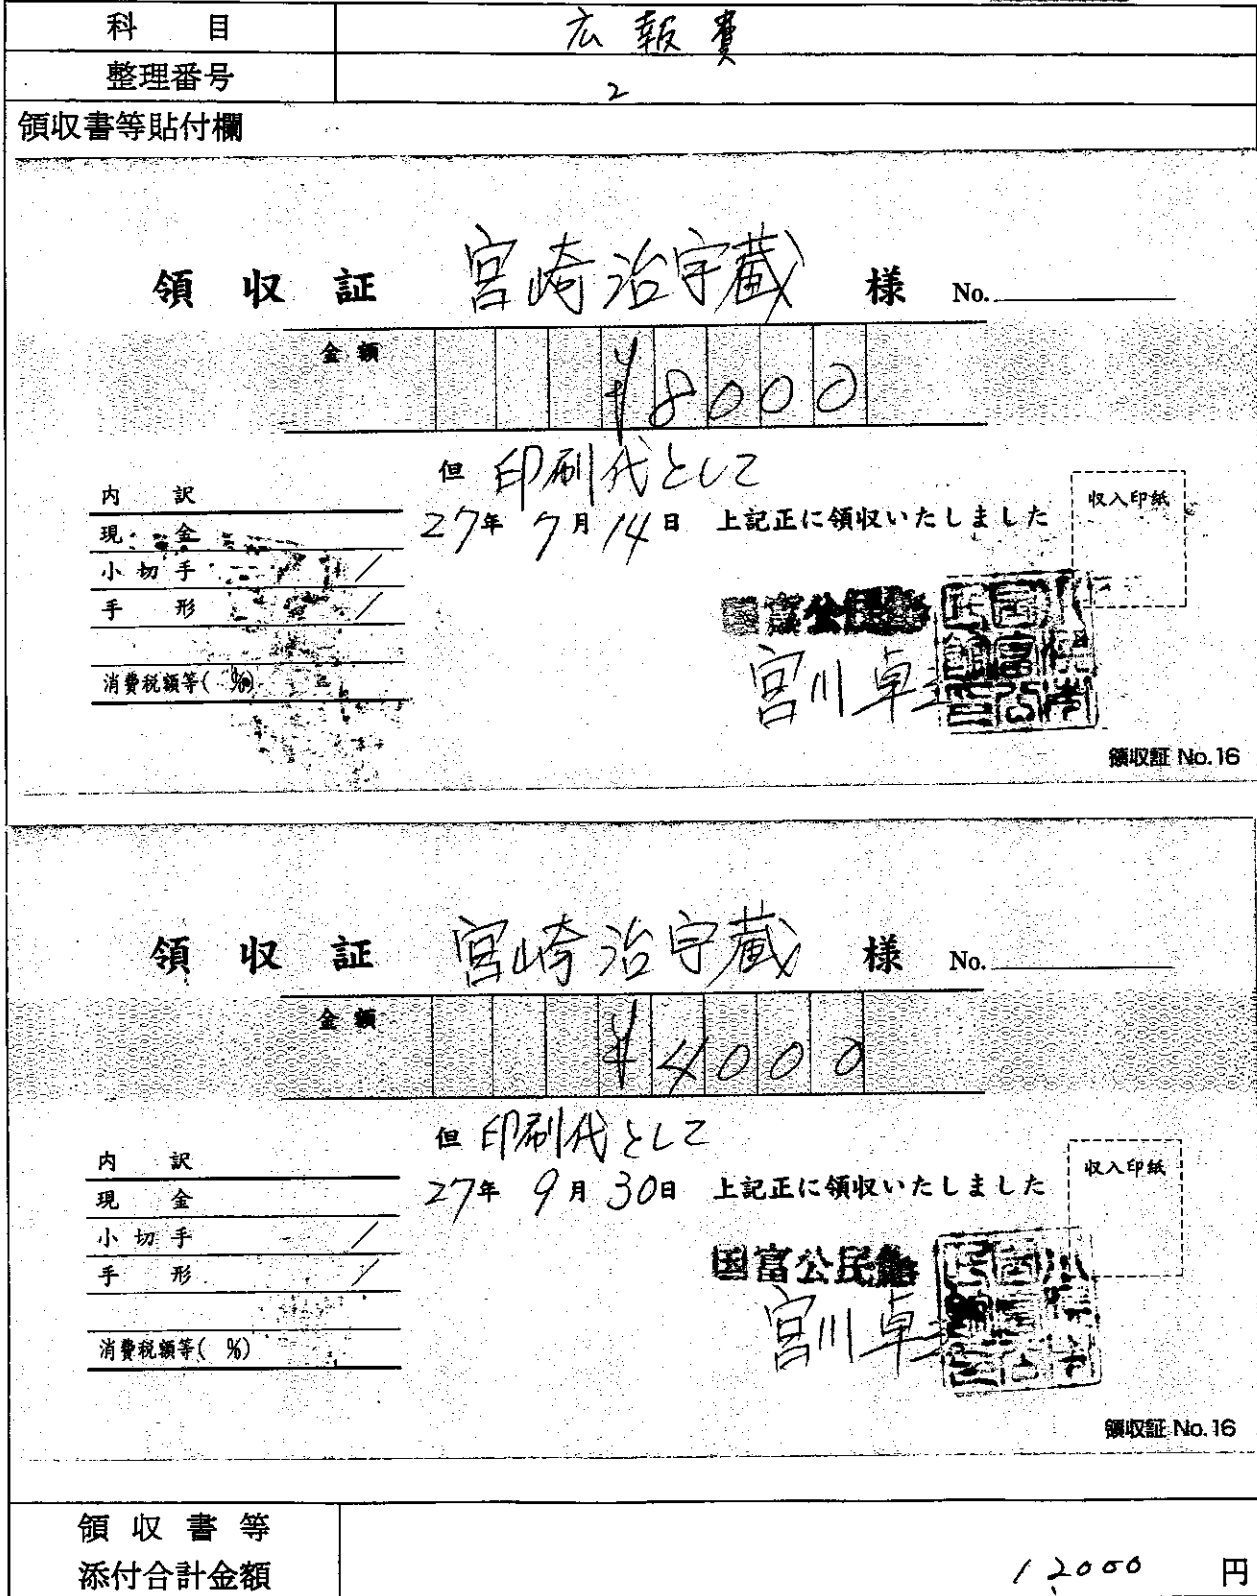 科 目 広報費
整理番号 2
領収書等貼付欄
領収証 宮崎治宇蔵 様 No.
金額 ¥8000
但 印刷代として
内 訳
27年 7月 14日 上記正に領収いたしました
収入印紙
現 金
小切手 /
手 形 /
国富公民館
宮川卓
消費税額等( %)
領収証 No.16
領収証 宮崎治宇蔵 様 No.
金額 ¥4000
但 印刷代として
内 訳
27年 9月 30日 上記正に領収いたしました
収入印紙
現 金
小切手 /
手 形 /
国富公民館
宮川卓
消費税額等( %)
領収証 No.16
領収書等
添付合計金額 12000 円